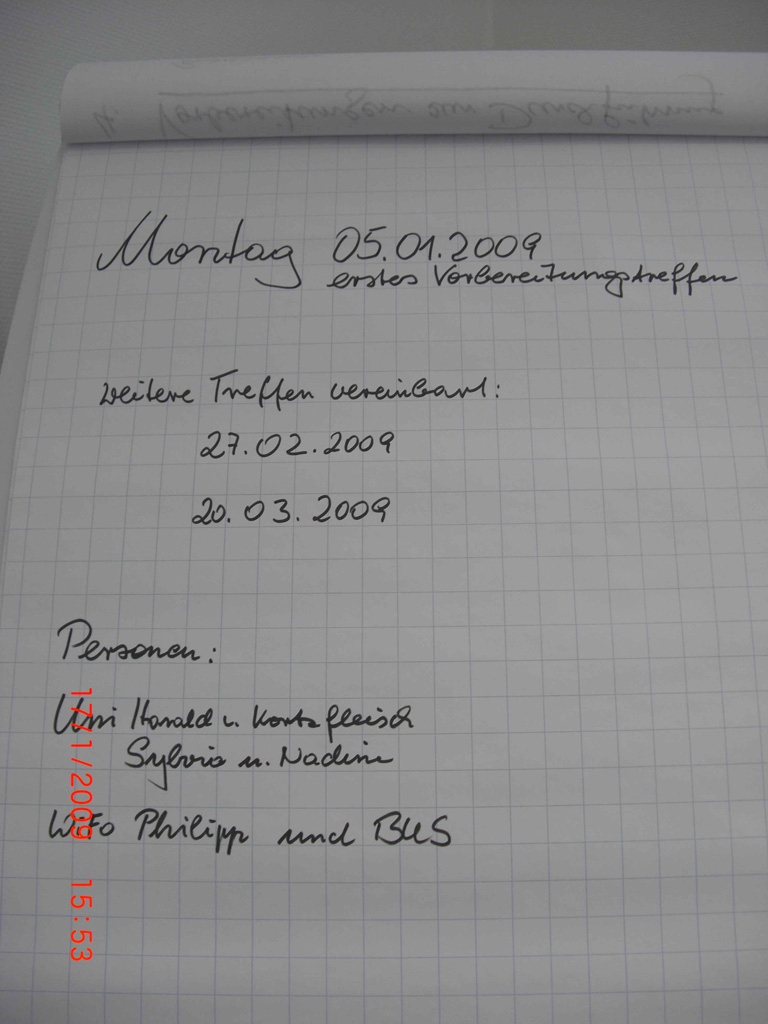 4. Vorbereitungen zur Durchführung
Montag 05.01.2009
erstes Vorbereitungstreffen
weitere Treffen vereinbart:
27.02.2009
20.03.2009
Personen:
Uni Harald v. Kortzfleisch
Sylvia u. Nadine
WiFo Philipp und BUS
17/1/2009 15:53